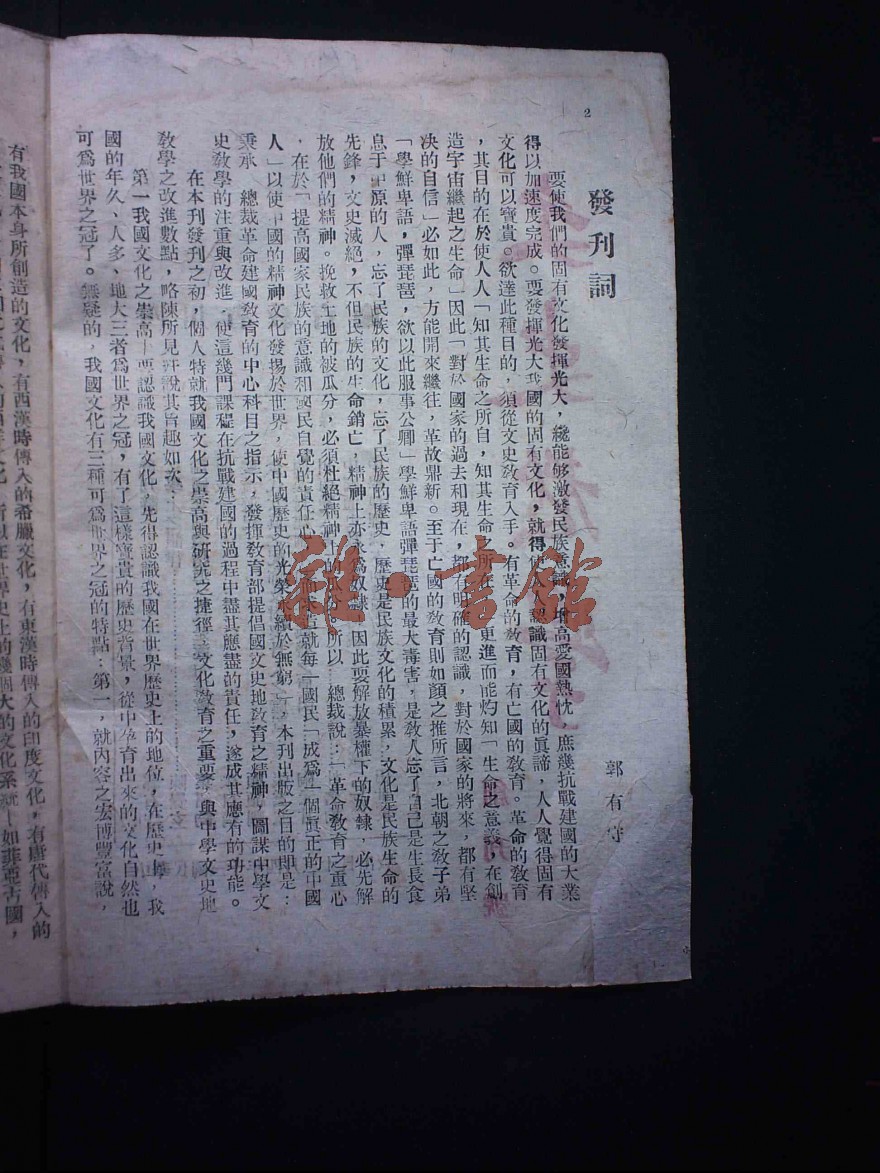 2
發刊詞
郭有守
要使我們的固有文化發揮光大，纔能够激發民族意識，增高愛國熱忱，庶幾抗戰建國的大業
得以加速度完成。要發揮光大我國的固有文化，就得使人人認識固有文化的眞諦，人人覺得固有
文化可以寶貴。欲達此種目的，須從文史敎育入手。有革命的敎育，有亡國的敎育。革命的敎育
，其目的在於使人人「知其生命之所自，知其生命之所在，更進而能灼知「生命之意義，在創
造宇宙繼起之生命」因此「對於國家的過去和現在，都有明確的認識，對於國家的將來，都有堅
决的自信」必如此，方能開來繼往，革故鼎新。至于亡國的敎育則如顏之推所言，北朝之敎子弟
「學鮮卑語，彈琵琶，欲以此服事公卿」學鮮卑語彈琵琶的最大毒害，是敎人忘了自己是生長食
息于中原的人，忘了民族的文化，忘了民族的歷史，歷史是民族文化的積累，文化是民族生命的
先鋒，文史滅絕，不但民族的生命銷亡，精神上亦永爲奴隸，因此要解放暴權下的奴隸，必先解
放他們的精神。挽救土地的被瓜分，必須杜絕精神上的瓜分，所以 總裁說：「革命敎育之重心
，在於「提高國家民族的意識和國民自覺的責任心，而本這就每一國民「成爲一個眞正的中國
人」以使中國的精神文化發揚於世界，使中國歷史的光榮永續於無窮」，本刊出版之目的即是：
秉承 總裁革命建國敎育的中心科目之指示，發揮敎育部提倡國文史地敎育之精神，圖謀中學文
史敎學的注重與改進，使這幾門課程在抗戰建國的過程中盡其應盡的責任，遂成其應有的功能。
在本刊發刊之初，個人特就我國文化之崇高與硏究之捷徑，文化敎育之重要，與中學文史地
敎學之改進數點，略陳所見并說其旨趣如次：
第一我國文化之崇高 要認識我國文化，先得認識我國在世界歷史上的地位，在歷史上，我
國的年久、人多、地大三者爲世界之冠，有了這樣寶貴的歷史背景，從中孕育出來的文化自然也
可爲世界之冠了。無疑的，我國文化有三種可爲世界之冠的特點：第一，就內容之宏博豐富說，
有我國本身所創造的文化，有西漢時傳入的希臘文化，有東漢時傳入的印度文化，有唐代傳入的
雜·書館